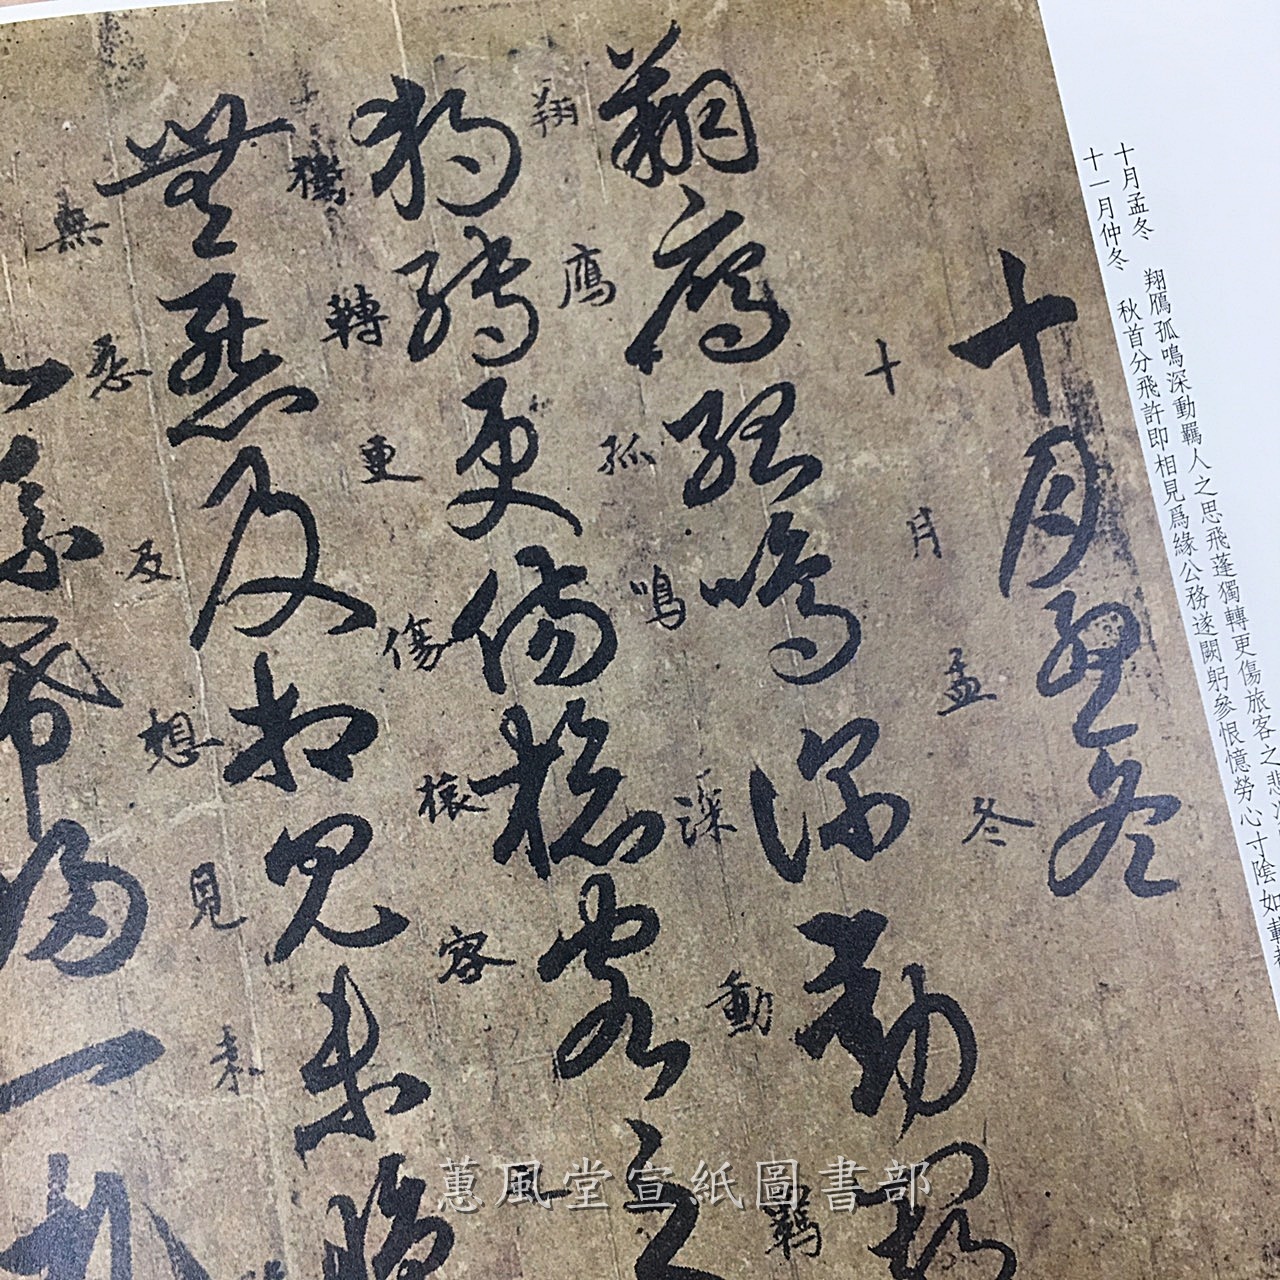 十月孟冬　翔鴈孤鳴深動羈人之思飛蓬獨轉更傷旅客之悲
十一月仲冬　秋首分飛許即相見爲緣公務遂闕躬參恨憶勞心寸陰如載
十月孟冬
十月孟冬
翔鴈孤鳴深動羈
翔鷹孤鳴深動羈
獨轉更傷旅客之
轉更傷客
無悉及相見未
無悉及想見未
帰一
蕙風堂宣紙圖書部